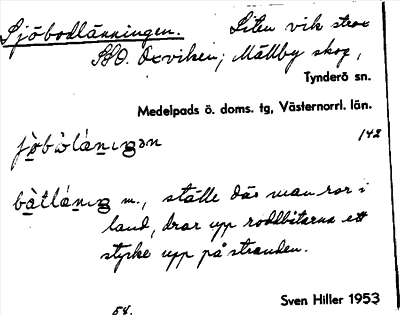 Sjöbodlänningen. Liten vik strax
SSO. Oxviken; Mällby skog,
Tynderö sn.
Medelpads ö. doms. tg, Västernorrl. län.
142
båtlánıŋ m., ställe där man ror i
land, drar upp roddbåtarna ett
stycke upp på stranden.
Sven Hiller 1953
54.